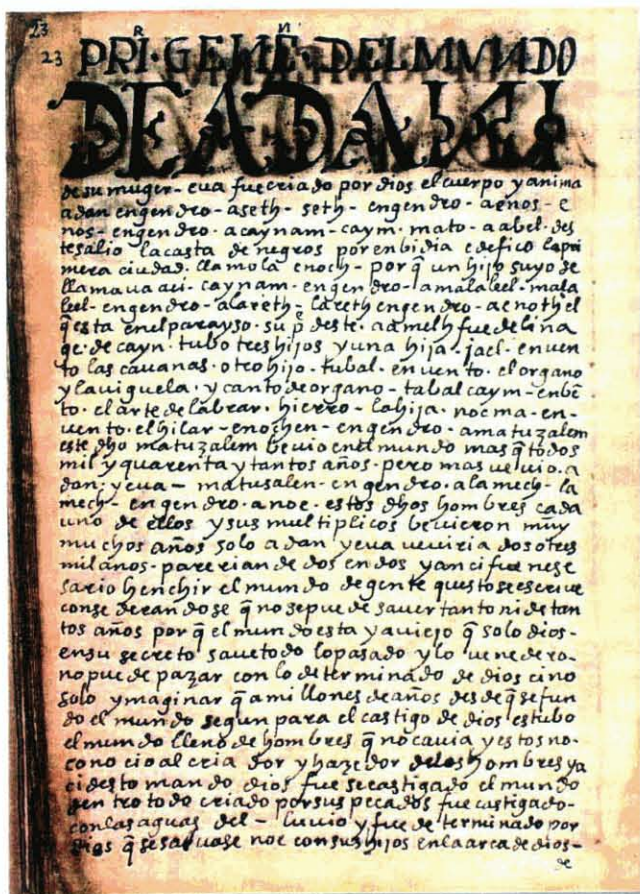 23
23 PRĪ·GENEŇ·DEL MVNDO
DE ADAN I
de su muger - eua fue criado por dios el cuerpo y anima
adan engendro - a seth - seth - engendro - a enos - e
nos - engendro · a caynam - caym · mato - a abel · des
te salio la casta de negros por enbidia edefico la pri
mera ciudad · llamola enoch - por q̄ un hijo suyo se
llamaua aci - caynam - engendro - a malaleel - mala
leel - engendro - a lareth - lareth engendro - a enoth el
q̄ esta en el parayso · su p̄ deste · a amelh fue de lina
ge · de cayn · tubo tres hijos y una hija - jael - enuen
to las cauanas · otro hijo - tubal - enuento · el organo
y la uiguela · y canto de organo - tabal caym - enbē
to · el arte de labrar · hierro - la hija · nocma - en-
uento · el hilar - enochen - engendro · a matuzalem
este dho matuzalem beuio en el mundo mas q̄ todos
mil y quarenta y tantos años · pero mas ueuio · a
dan · y eua - matusalen - engendro · a lamech - la
mech - engendro · a noe - estos dhos hombres cada
uno de ellos y sus multiplicos beuieron muy
muchos años solo adan y eua ueuiria dos o tres
mil años - parerian de dos en dos y anci fue nese
sario henchir el mundo de gente questo se escriue
consederandose q̄ no se puede sauer tanto ni de tan
tos años por q̄ el mundo esta ya uiejo q̄ solo dios -
en su secreto saue todo lo pasado y lo uenedero -
no puede pazar con lo determinado de dios cino
solo ymaginar q̄ a millones de años desde q̄ se fun
do el mundo segun para el castigo de dios estubo
el mundo lleno de hombres q̄ no cauia y estos no-
conocio al criador y hazedor de los hombres ya
ci desto mando dios fuese castigado el mundo
dentro todo criado por sus pecados fue castigado -
con las aguas del - luuio y fue determinado por
dios q̄ se saluase noe con sus hijos en la arca de dios -
de